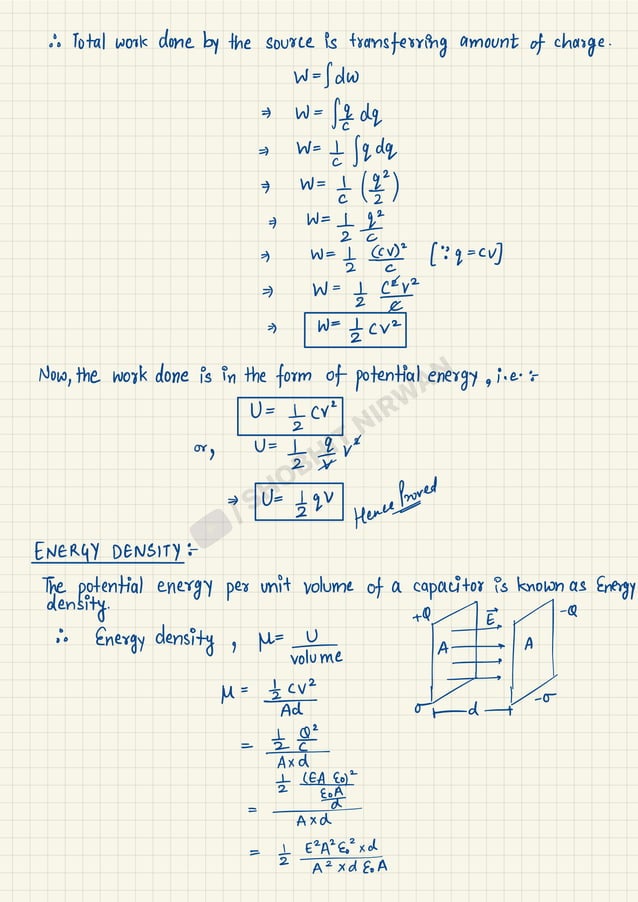 ∴ Total work done by the source is transferring amount of charge.
W = ∫dw
⇒ W = ∫ q/c dq
⇒ W = 1/c ∫q dq
⇒ W = 1/c (q²/2)
⇒ W = 1/2 q²/c
⇒ W = 1/2 (cv)²/c [∵ q = cv]
⇒ W = 1/2 c²v²/c
⇒ W = 1/2 cv²
Now, the work done is in the form of potential energy, i.e. :-
U = 1/2 cv²
or, U = 1/2 q/v v²
⇒ U = 1/2 qv
Hence Proved
/ SHOBHIT NIRWAN
ENERGY DENSITY :-
The potential energy per unit volume of a capacitor is known as Energy
density.
∴ Energy density, μ = U/volume
μ = 1/2 cv² / Ad
= 1/2 Q²/c / A×d
= 1/2 (EA ε₀)² / (ε₀A/d) / A×d
= 1/2 E²A²ε₀² × d / A² × d ε₀ A
+Q E⃗ -Q
A A
σ d -σ